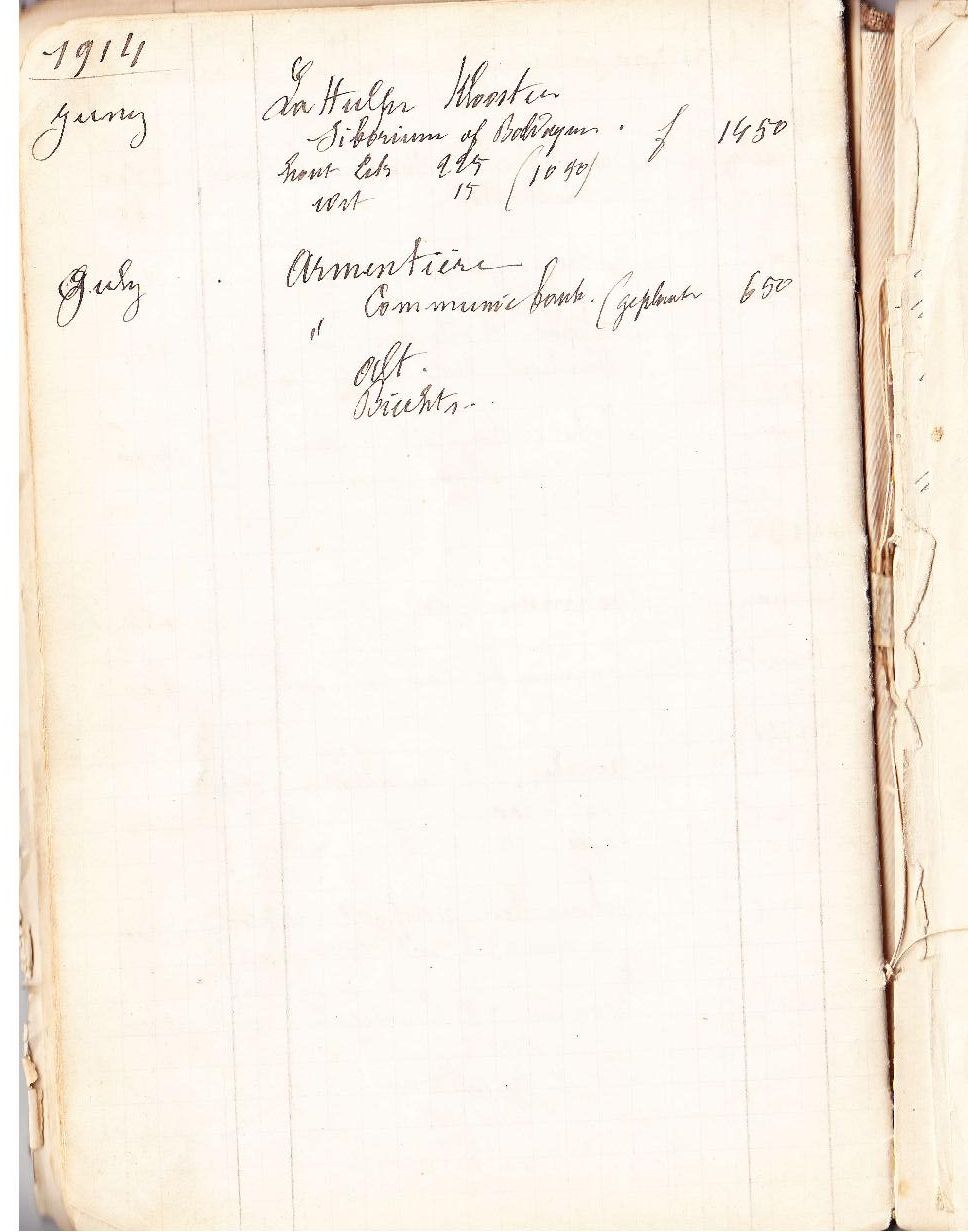 1914
Juny La Hulpe Klooster
Siborium of Baldaquin. f 1450
hout 225 (1090)
15
July Armentière
" Communiebank. (geplaats 650
Alt.
Biechts.